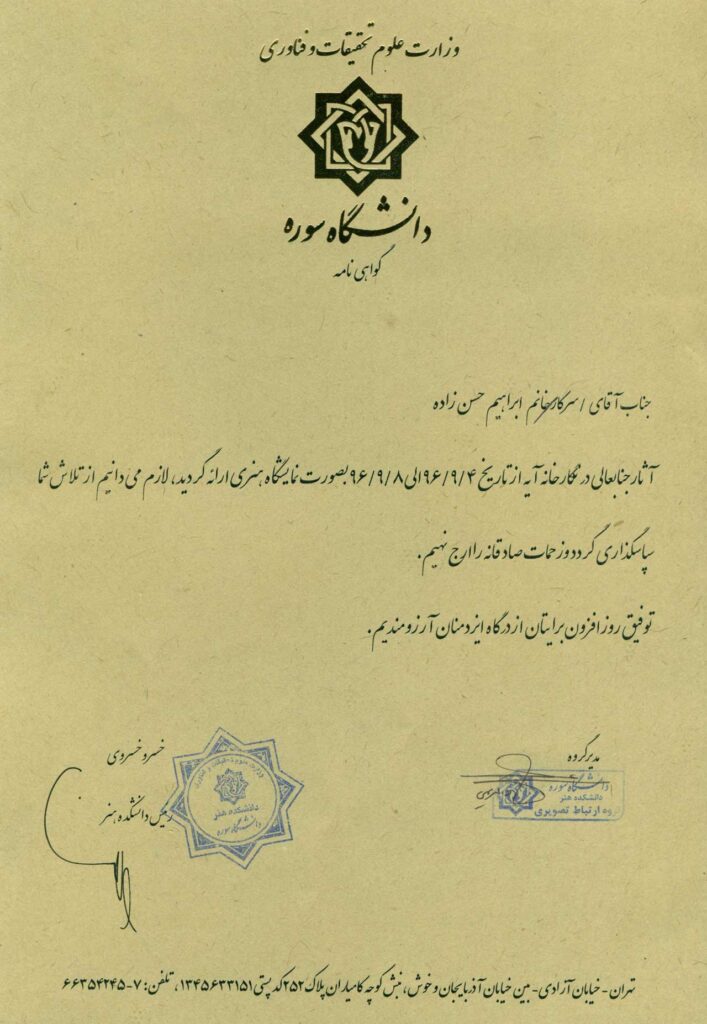 وزارت علوم تحقیقات و فناوری
دانشگاه سوره
گواهی نامه
جناب آقای / سرکارخانم ابراهیم حسن زاده
آثار جنابعالی در نگارخانه آیه از تاریخ ۹۶/۹/۴ الی ۹۶/۹/۸ بصورت نمایشگاه هنری ارائه گردید، لازم می دانیم از تلاش شما
سپاسگذاری گردد و زحمات صادقانه را ارج نهیم.
توفیق روز افزون برایتان از درگاه ایزد منان آرزومندیم.
مدیر گروه
دانشگاه سوره
دانشکده هنر
گروه ارتباط تصویری
خسرو خسروی
رئیس دانشکده هنر
وزارت علوم، تحقیقات و فناوری
دانشکده هنر
دانشگاه سوره
تهران - خیابان آزادی - بین خیابان آذربایجان و خوش، نبش کوچه کامیاران پلاک ۲۵۲ کد پستی ۱۳۴۵۶۳۳۱۵۱، تلفن: ۷-۶۶۳۵۴۲۴۵